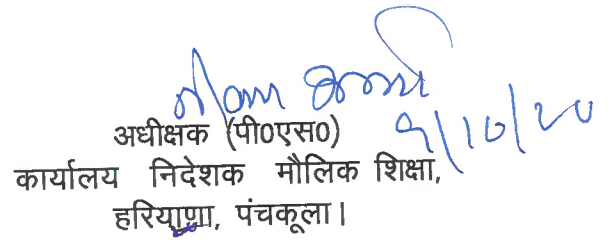 9/10/20
अधीक्षक (पी0एस0)
कार्यालय निदेशक मौलिक शिक्षा,
हरियाणा, पंचकूला।